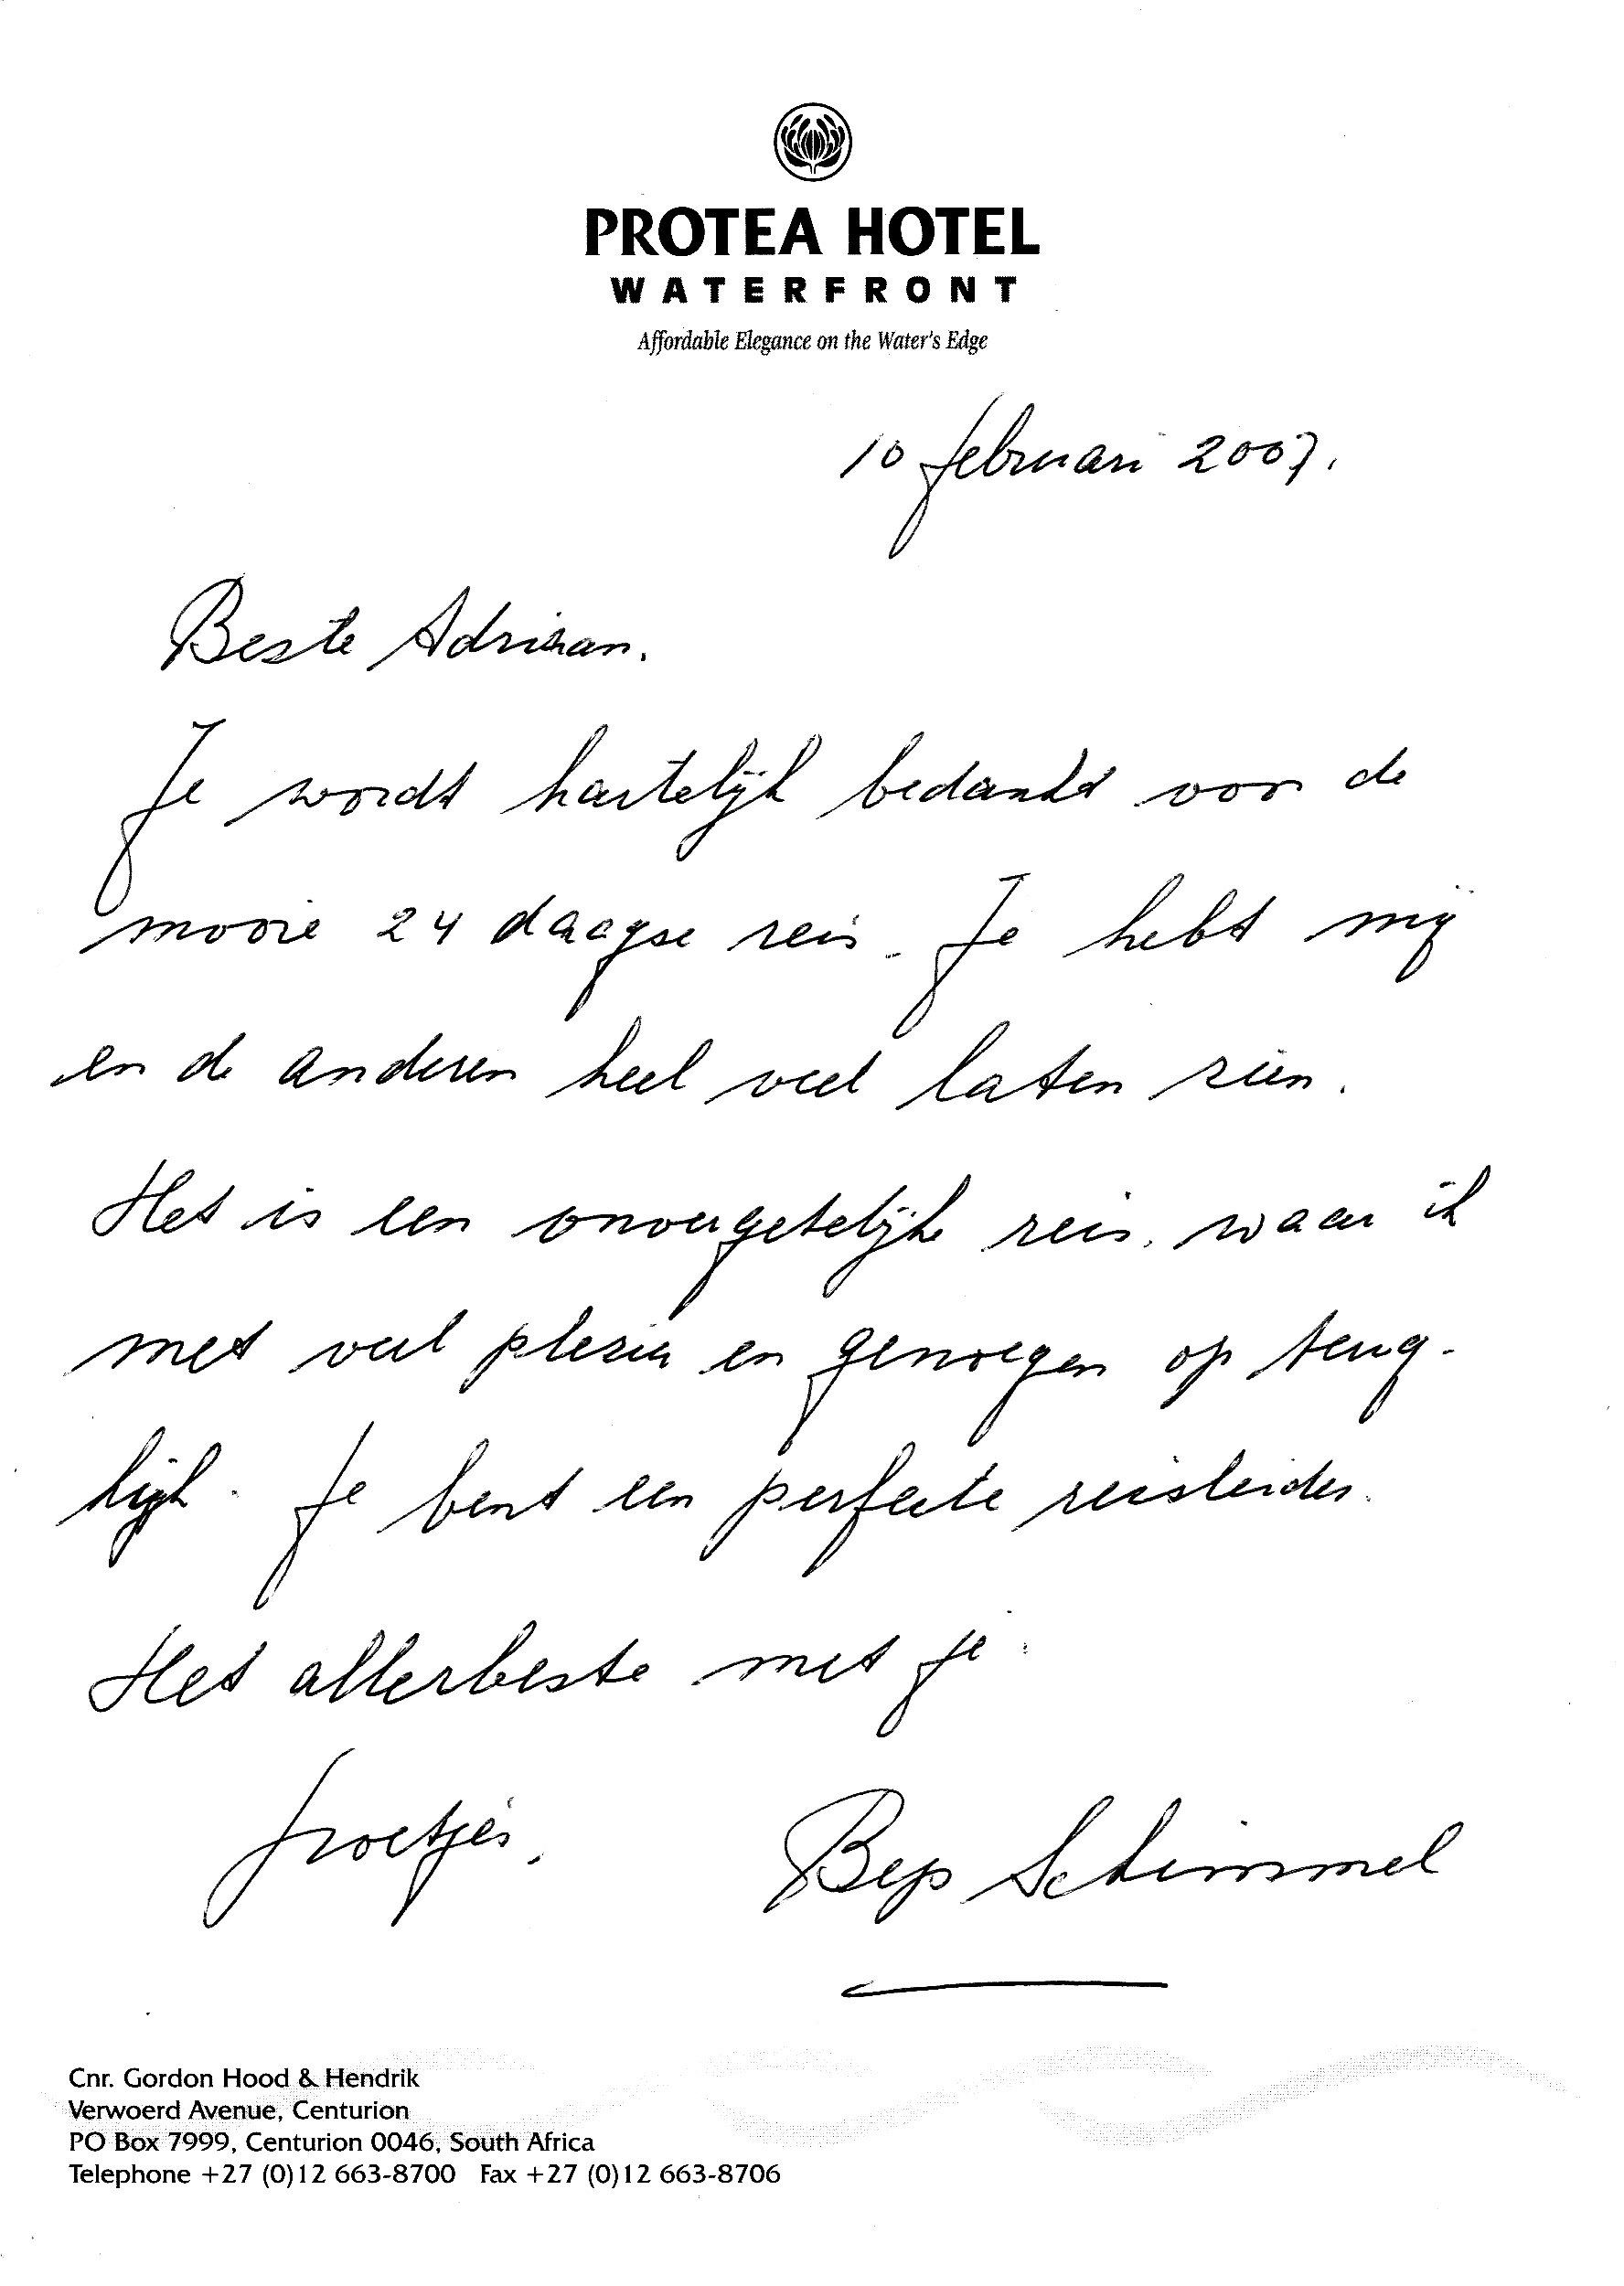 PROTEA HOTEL
WATERFRONT
Affordable Elegance on the Water's Edge
10 februari 2007.
Beste Adriaan.
Je wordt hartelijk bedankt voor de
mooie 24 daagse reis. Je hebt mij
en de anderen heel veel laten zien.
Het is een onvergetelijke reis, waar ik
met veel plezier en genoegen op terug-
kijk. Je bent een perfecte reisleider.
Het allerbeste met je.
Groetjes,
Bep Schimmel
Cnr. Gordon Hood & Hendrik
Verwoerd Avenue, Centurion
PO Box 7999, Centurion 0046, South Africa
Telephone +27 (0)12 663-8700 Fax +27 (0)12 663-8706